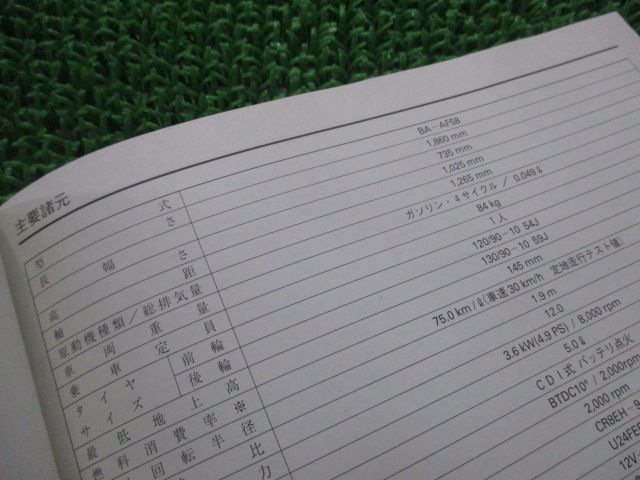 主要諸元
型式 BA-AF58
長さ 1,860 mm
幅 735 mm
高さ 1,025 mm
軸距 1,265 mm
原動機種類／総排気量 ガソリン・4サイクル / 0.049ℓ
車両重量 84 kg
乗車定員 1人
タイヤサイズ 前輪 120/90-10 54J
後輪 130/90-10 59J
最低地上高 145 mm
燃料消費率※ 75.0 km/ℓ(車速30 km/h 定地走行テスト値)
回転半径 1.9 m
比 12.0
力 3.6 kW(4.9 PS) / 8,000 rpm
5.0ℓ
CDI式バッテリ点火
BTDC10° / 2,000rpm
2,000 rpm
CR8EH-9
U24FE
12V